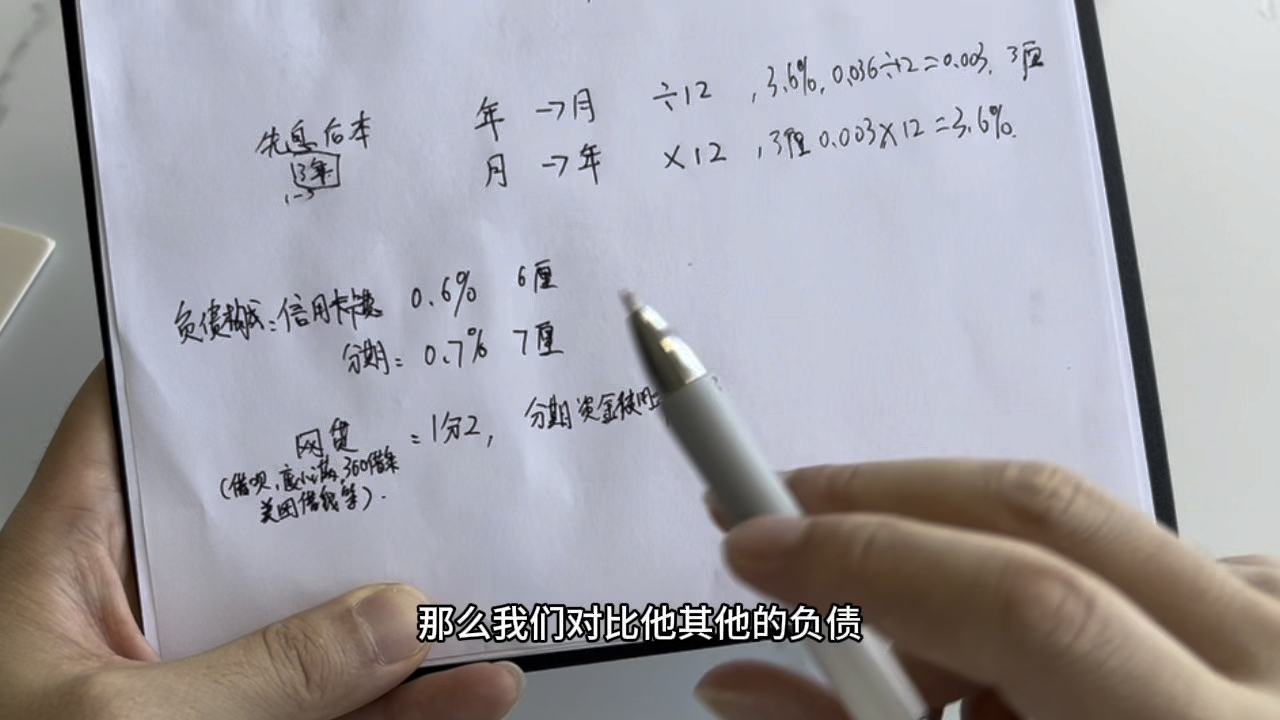 年 → 月 ÷12 , 3.6%, 0.036÷12=0.003. 3厘
先息后本
月 → 年 ×12 , 3厘 0.003×12=3.6%.
3年
1-3
负债构成: 信用卡 0.6% 6厘
分期: 0.7% 7厘
网贷 = 1分2, 分期资金使用
(借呗, 度小满, 360借条
美团借钱等).
那么我们对比他其他的负债